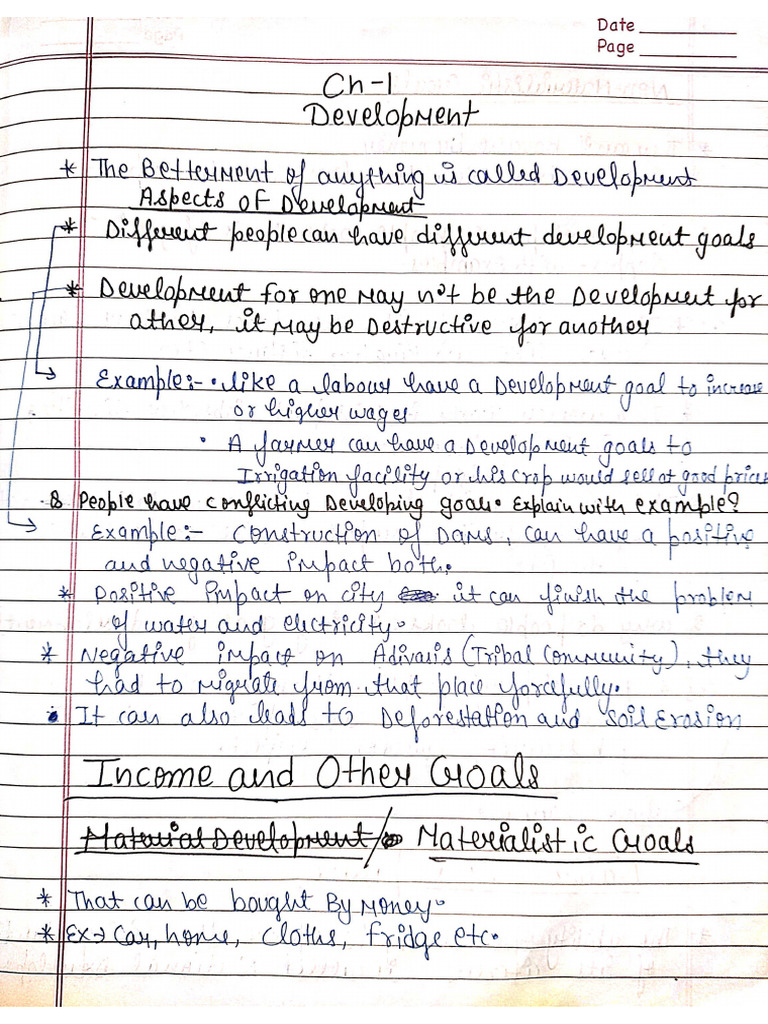 Date
Page
Ch-1
Development
* The Betterment of anything is called Development
Aspects of Development
* Different people can have different development goals
* Development for one may not be the Development for
ather, it may be Destructive for another
Example:- • like a labour have a Development goal to increase
or higher wages
• A farmer can have a Development goals to
Irrigation facility or his crop would sell at good prices
Q People have conflicting Developing goals. Explain with example?
Example:- Construction of Dams, can have a positive
and negative impact both.
* Positive Impact on city it can finish the problem
of water and electricity.
* Negative impact on Adivasis (Tribal Community), they
had to migrate from that place forcefully.
• It can also leads to Deforestation and Soil Erosion
Income and Other Goals
Material Development / Materialistic Goals
* That can be bought By Money.
* Ex→ Car, home, cloths, fridge etc.